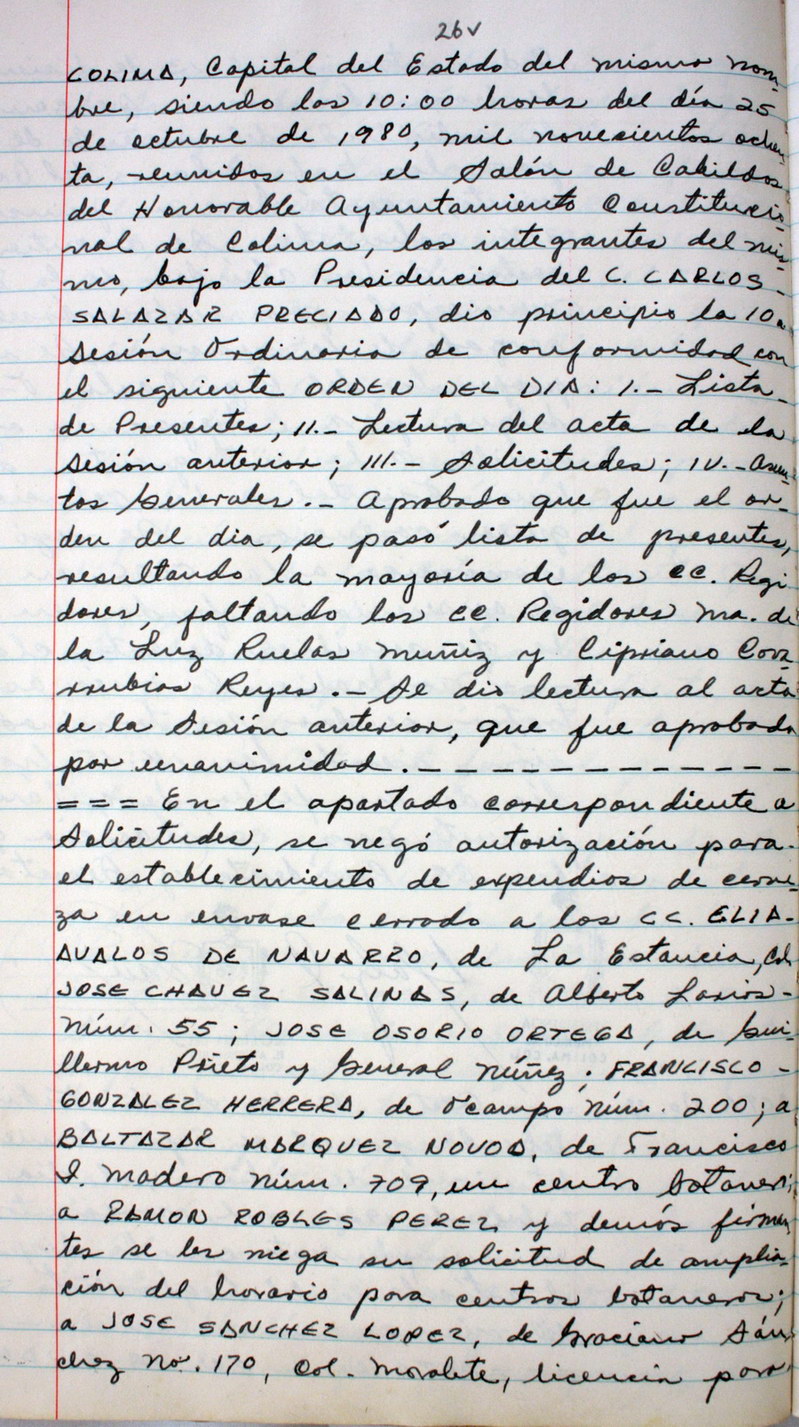 26v
COLIMA, Capital del Estado del mismo nom-
bre, siendo las 10:00 horas del día 25
de octubre de 1980, mil novecientos ochen
ta, reunidos en el Salón de Cabildos
del Honorable Ayuntamiento Constitucio
nal de Colima, los integrantes del mis-
mo, bajo la Presidencia del C. CARLOS -
SALAZAR PRECIADO, dio principio la 10a
Sesión Ordinaria de conformidad con
el siguiente ORDEN DEL DIA: I.- Lista-
de Presentes; II.- Lectura del acta de la
sesión anterior; III.- Solicitudes; IV.- Asun
tos Generales.- Aprobado que fue el or-
den del dia, se pasó lista de presentes,
resultando la mayoría de los CC. Regi
dores, faltando los CC. Regidores Ma. de
la Luz Ruelas Muñiz y Cipriano Cova
rrubias Reyes.- Se dio lectura al acta
de la Sesión anterior, que fue aprobada
por unanimidad.- - - - - - - - - - - -
= = = En el apartado correspondiente a
Solicitudes, se negó autorización para-
el establecimiento de expendios de cerve
za en envase cerrado a los CC. ELIA-
AVALOS DE NAVARRO, de La Estancia, Col.
JOSE CHAVEZ SALINAS, de Alberto Larios-
Núm. 55; JOSE OSORIO ORTEGA, de Gui-
llermo Prieto y General Núñez; FRANCISCO -
GONZALEZ HERRERA, de Ocampo Núm. 200; a
BALTAZAR MARQUEZ NOVOA, de Francisco
I. Madero Núm. 709, un centro botanero;
a RAMON ROBLES PEREZ y demás firman
tes se les niega su solicitud de amplia-
ción del horario para centros botaneros;
a JOSE SANCHEZ LOPEZ, de Graciano Sán
chez No. 170, Col. Moralete, licencia para